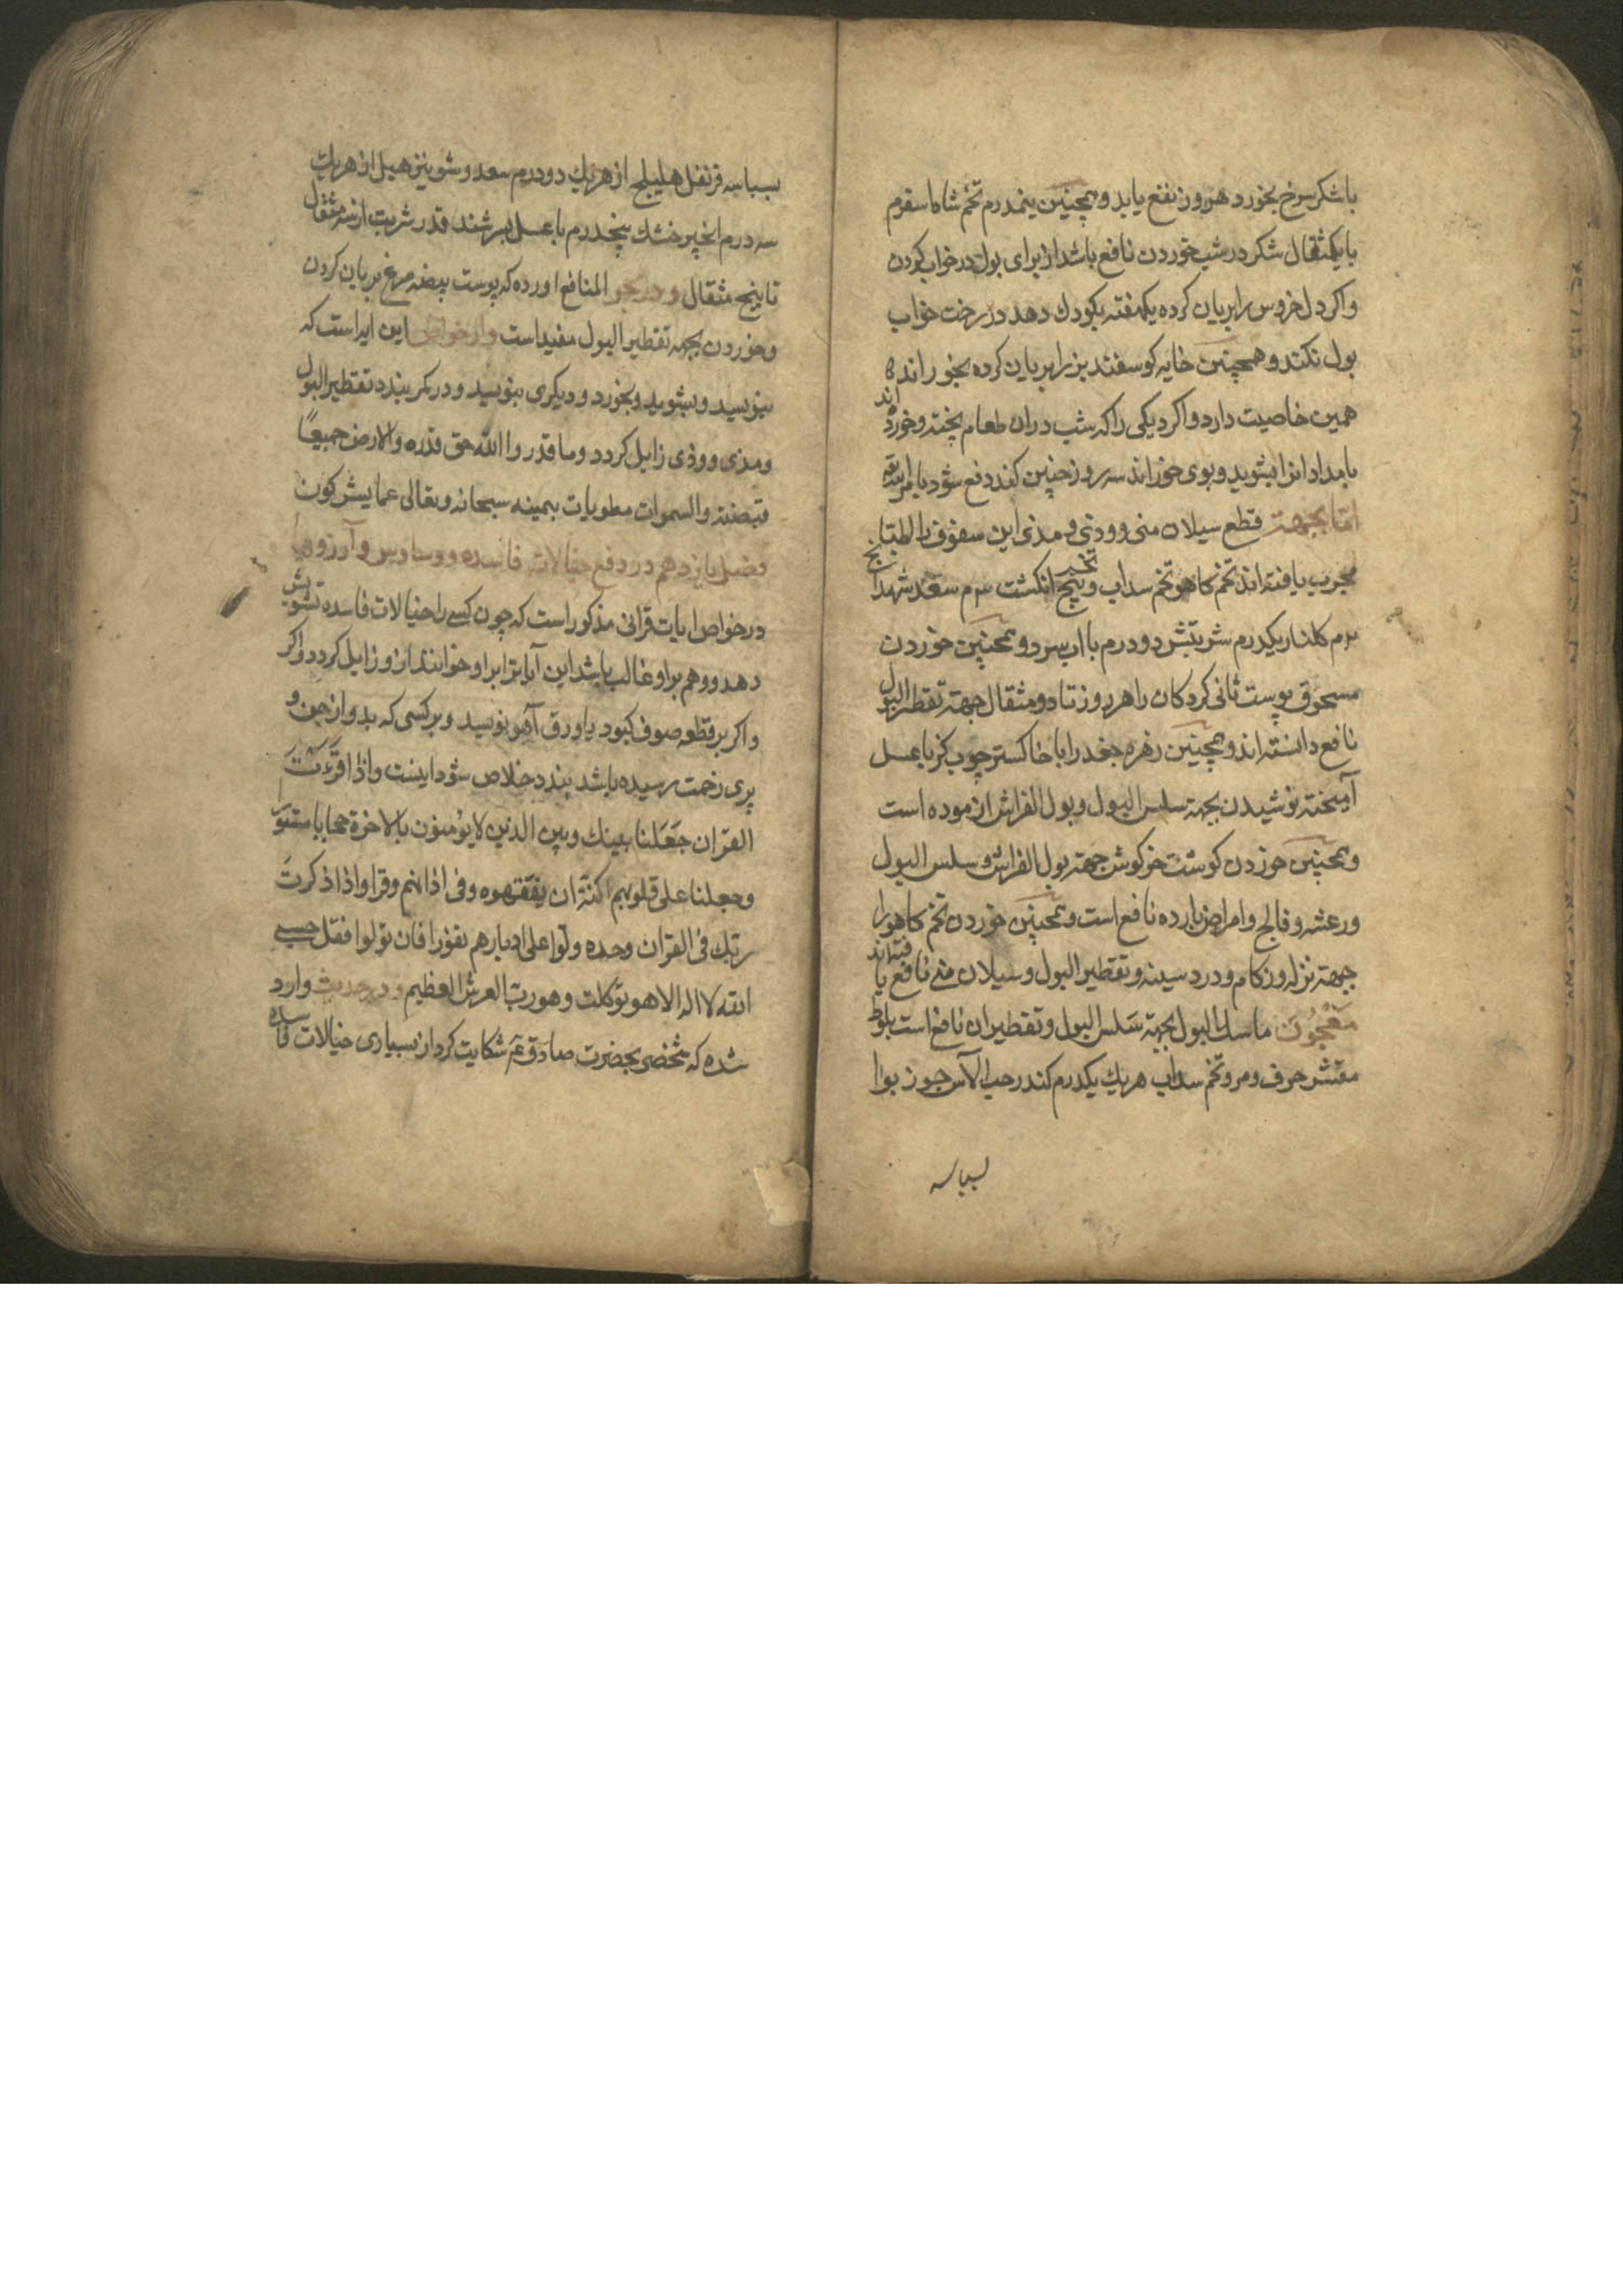 با شکر سرخ بخورد هر روز نفع یابد و همچنین نیمدرم تخم شاه اسفرم
با یکمثقال شکر در شب خوردن نافع باشد از برای بول در خواب کردن
واکر دل خروس را بریان کرده یکهفته بکودك دهد در رخت خواب
بول نکند و همچنین خایه کوسفند بز را بریان کرده بخورانند
همین خاصیت دارد واکر دیکی را که شب دران طعام پخته و خورده اند
بامداد انرا بشوید و بوی خوراند سه روز چنین کند دفع شود بامر الله
اما بجهة قطع سیلان منی و ودی و مذی این سفوف را اطبا
مجرب یافته اند تخم کاهو تخم سداب و تخم پنج انکشت ۳م سعد شهدانج
۲م کلنار یکدرم شربتش دو درم با اب سرد و همچنین خوردن
مسحوق پوست ثانی کردکان را هر روز تا دو مثقال جهة تقطیر البول
نافع دانسته اند و همچنین زهره جغد را با خاکستر چوب کز با عسل
آمیخته نوشیدن بجهة سلس البول و بول الفراش ازموده است
و همچنین خوردن کوشت خرکوش جهة بول الفراش و سلس البول
و رعشه و فالج و امراض بارده نافع است و همچنین خوردن تخم کاهو را
جهة نزله و زکام و درد سینه و تقطیر البول و سیلان منی نافع یافته اند
مَعْجُون ماسك البول بجهة سَلس البول و تقطیر ان نافع است بلوط
مقشر حرف و مر و تخم سداب هریك یکدرم کندر حب الآس جوز بوا
بسباسه
بسباسه قرنفل هلیلج از هریك دو درم سعد و شونیز هیل از هریك
سه درم انجیر خشك پنجدرم با عسل بسرشند قدر شربت از سه مثقال
تا پنج مثقال و در بحر المنافع اورده که پوست بیضه مرغ بریان کردن
و خوردن بجهة تقطیر البول مفید است و از خواص این ایه است که
بنویسد و بشوید و بخورد و دیکری بنویسد و در کمر بندد تقطیر البول
و مذی و وذی زایل کردد وما قدروا الله حق قدره والارض جمیعًا
قبضته والسموات مطویات بیمینه سبحانه وتعالی عما یشرکون
فصل یازدهم در دفع خیالات فاسده و وساوس و آرزوها
در خواص ایات قرانی مذکور است که چون کسی را خیالات فاسده تشویش
دهد و وهم برا و غالب باشد این آیات را برا و خوانند ازو زایل کردد واکر
واکر بر قطعه صوف کبود یا ورق آهو نویسد و بر کسی که بدو از جن و
پری زحمت رسیده باشد بندد خلاص شود اینست واذا قَرَءْتَ
القران جَعَلنا بینك وبین الذین لا یؤمنون بالاخرة حجابا مستورًا
وجعلنا علی قلوبهم اکنّة ان یفقهوه وفی اذانهم وقرا واذا ذکرتَ
ربّك فی القران وحده ولّوا علی ادبارهم نفورا فان تولوا فقل حسبی
الله لا اله الا هو توکلت وهو ربّ العرش العظیم و در حدیث وارد
شده که شخصی بحضرت صادق عم شکایت کرد از بسیاری خیالات فاسده